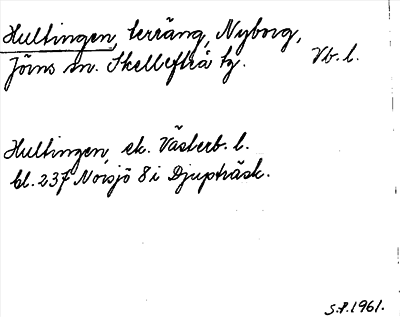 Hultingen, terräng, Nyborg,
Jörns sn. Skellefteå tg. Vb. l.
Hultingen, ek. Västerb. l.
bl. 237 Norsjö 8 i Djupträsk.
S.P. 1961.